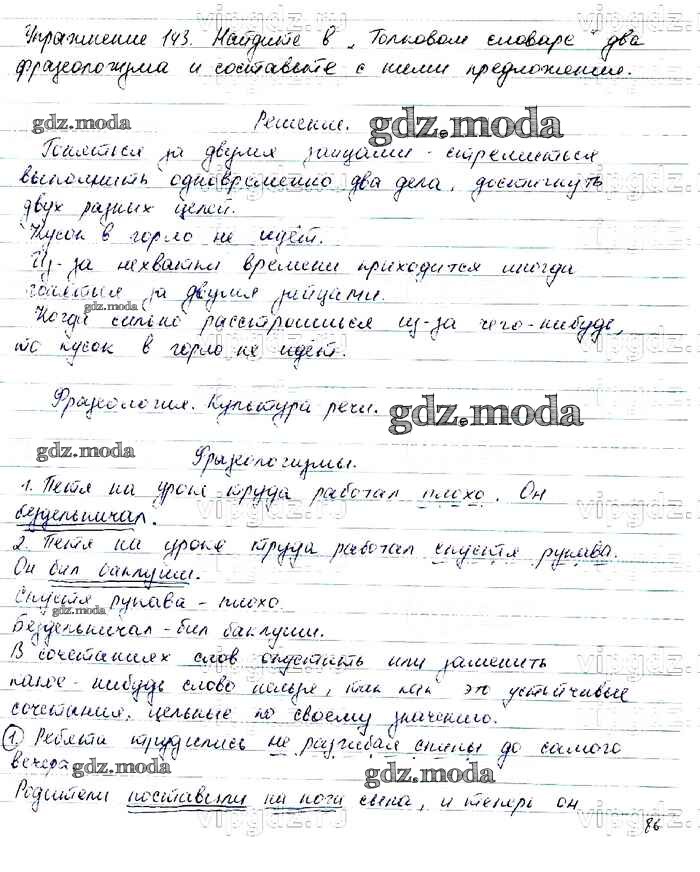 Упражнение 143. Найдите в „Толковом словаре" два
фразеологизма и составьте с ними предложения.
gdz.moda
Решение.
gdz.moda
Гоняться за двумя зайцами - стремиться
выполнить одновременно два дела, достигнуть
двух разных целей.
Кусок в горло не идёт.
Из-за нехватки времени приходится иногда
гоняться за двумя зайцами.
gdz.moda
Когда сильно расстроишься из-за чего-нибудь,
то кусок в горло не идёт.
Фразеология. Культура речи.
gdz.moda
gdz.moda
Фразеологизмы.
1. Петя на уроке труда работал плохо. Он
бездельничал.
2. Петя на уроке труда работал спустя рукава.
Он бил баклуши.
Спустя рукава - плохо
gdz.moda
Бездельничал - бил баклуши.
В сочетаниях слов опустить или заменить
какое-нибудь слово нельзя, так как это устойчивые
сочетания, цельные по своему значению.
1 Ребята трудились не разгибая спины до самого
вечера
gdz.moda
gdz.moda
Родители поставили на ноги сына, и теперь он
86
vipgdz.ru